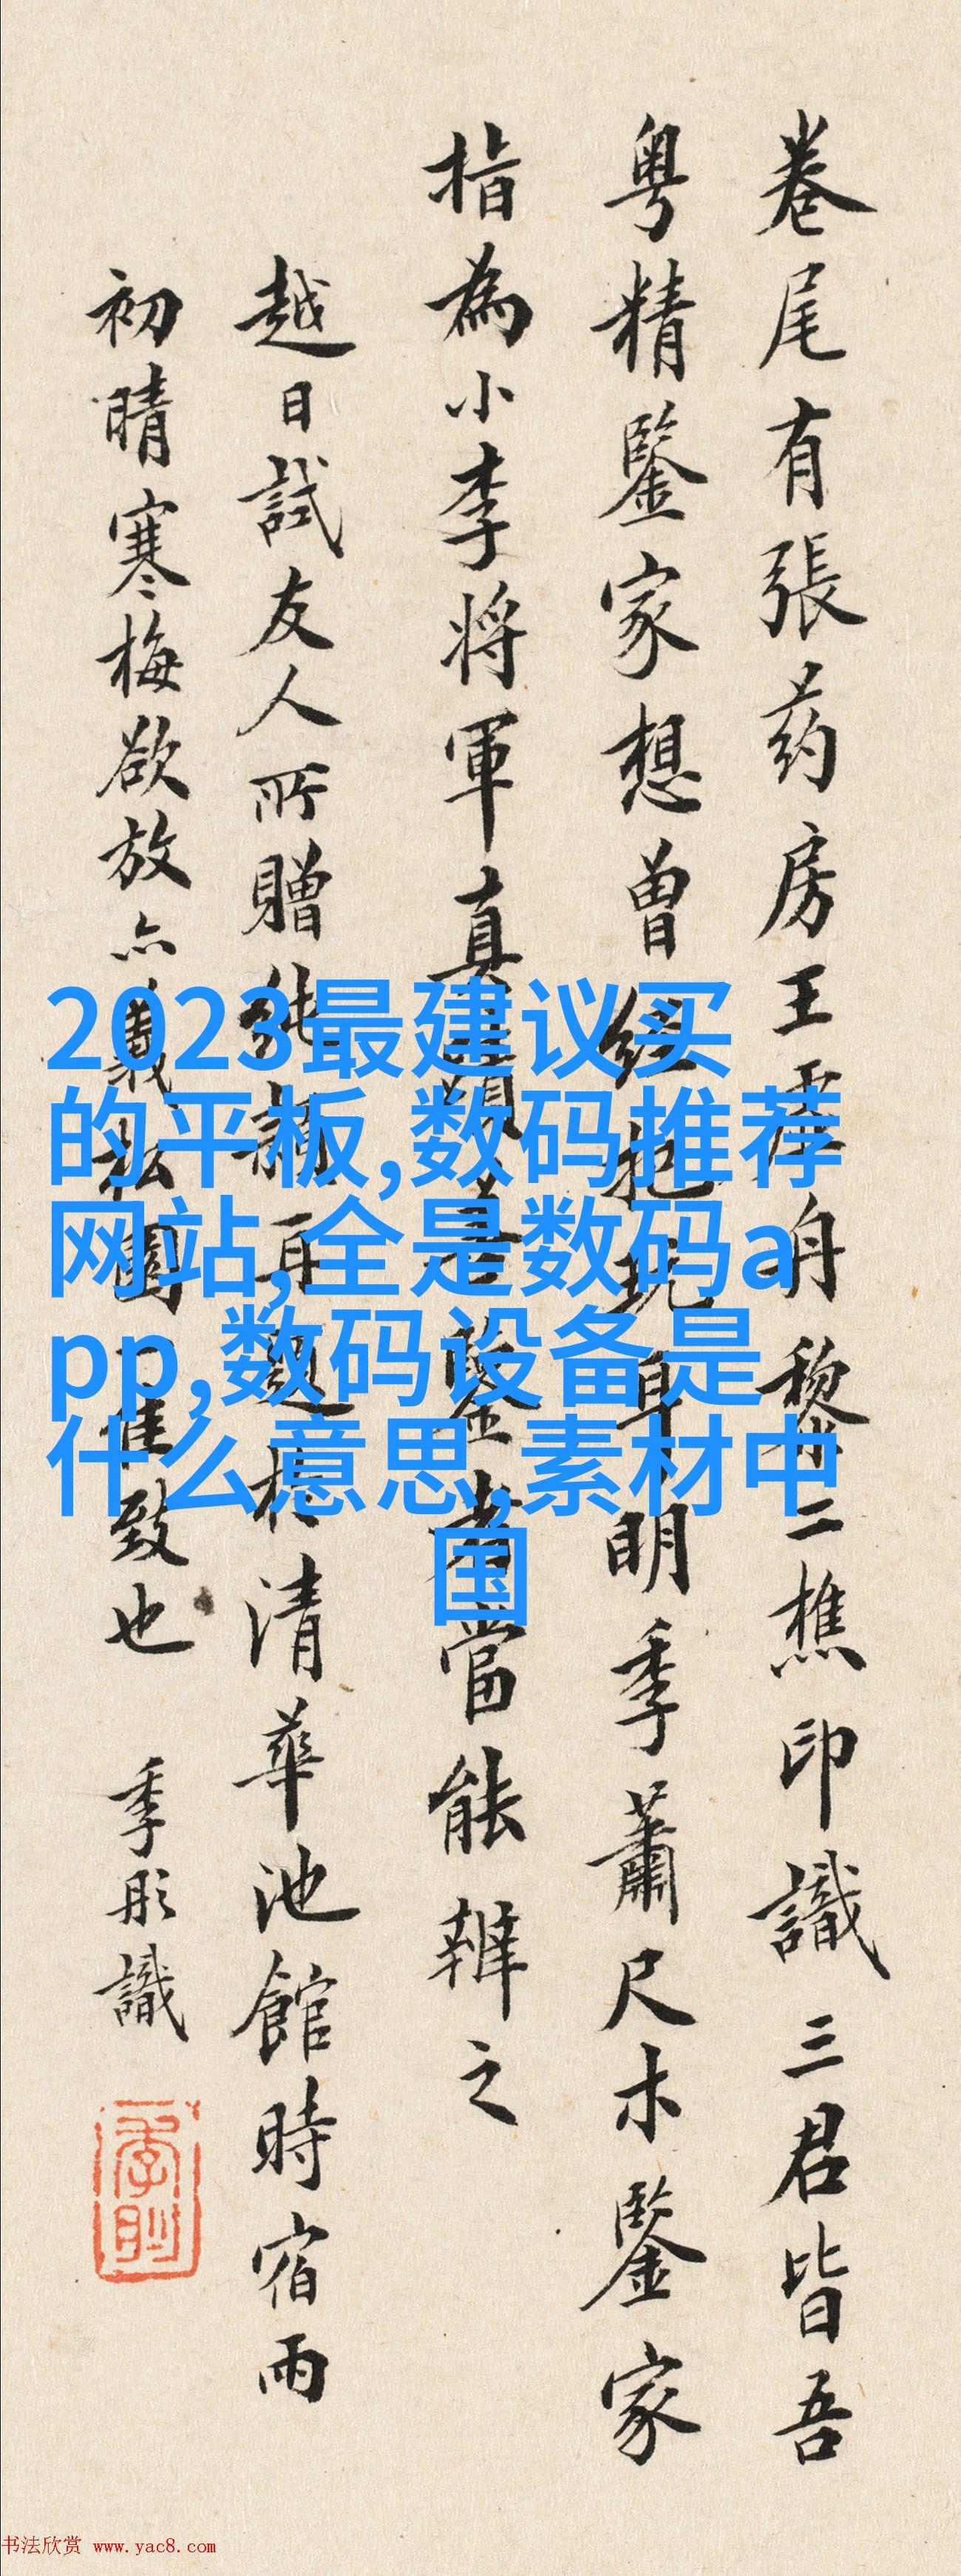 卷尾有張药房王舟黎二樵印識三君皆吾
粤精鑒家想曾經玩明季蕭尺木鑒家
指為小李将軍真蹟善鑒者當能辨之
越日試友人所贈純再題於清華池館時宿雨
初晴寒梅欲放亦園一佳致也 季彤識
2023最建议买
的平板,数码推荐
网站,全是数码a
pp,数码设备是
什么意思,素材中
国
书法欣赏 www.yac8.com